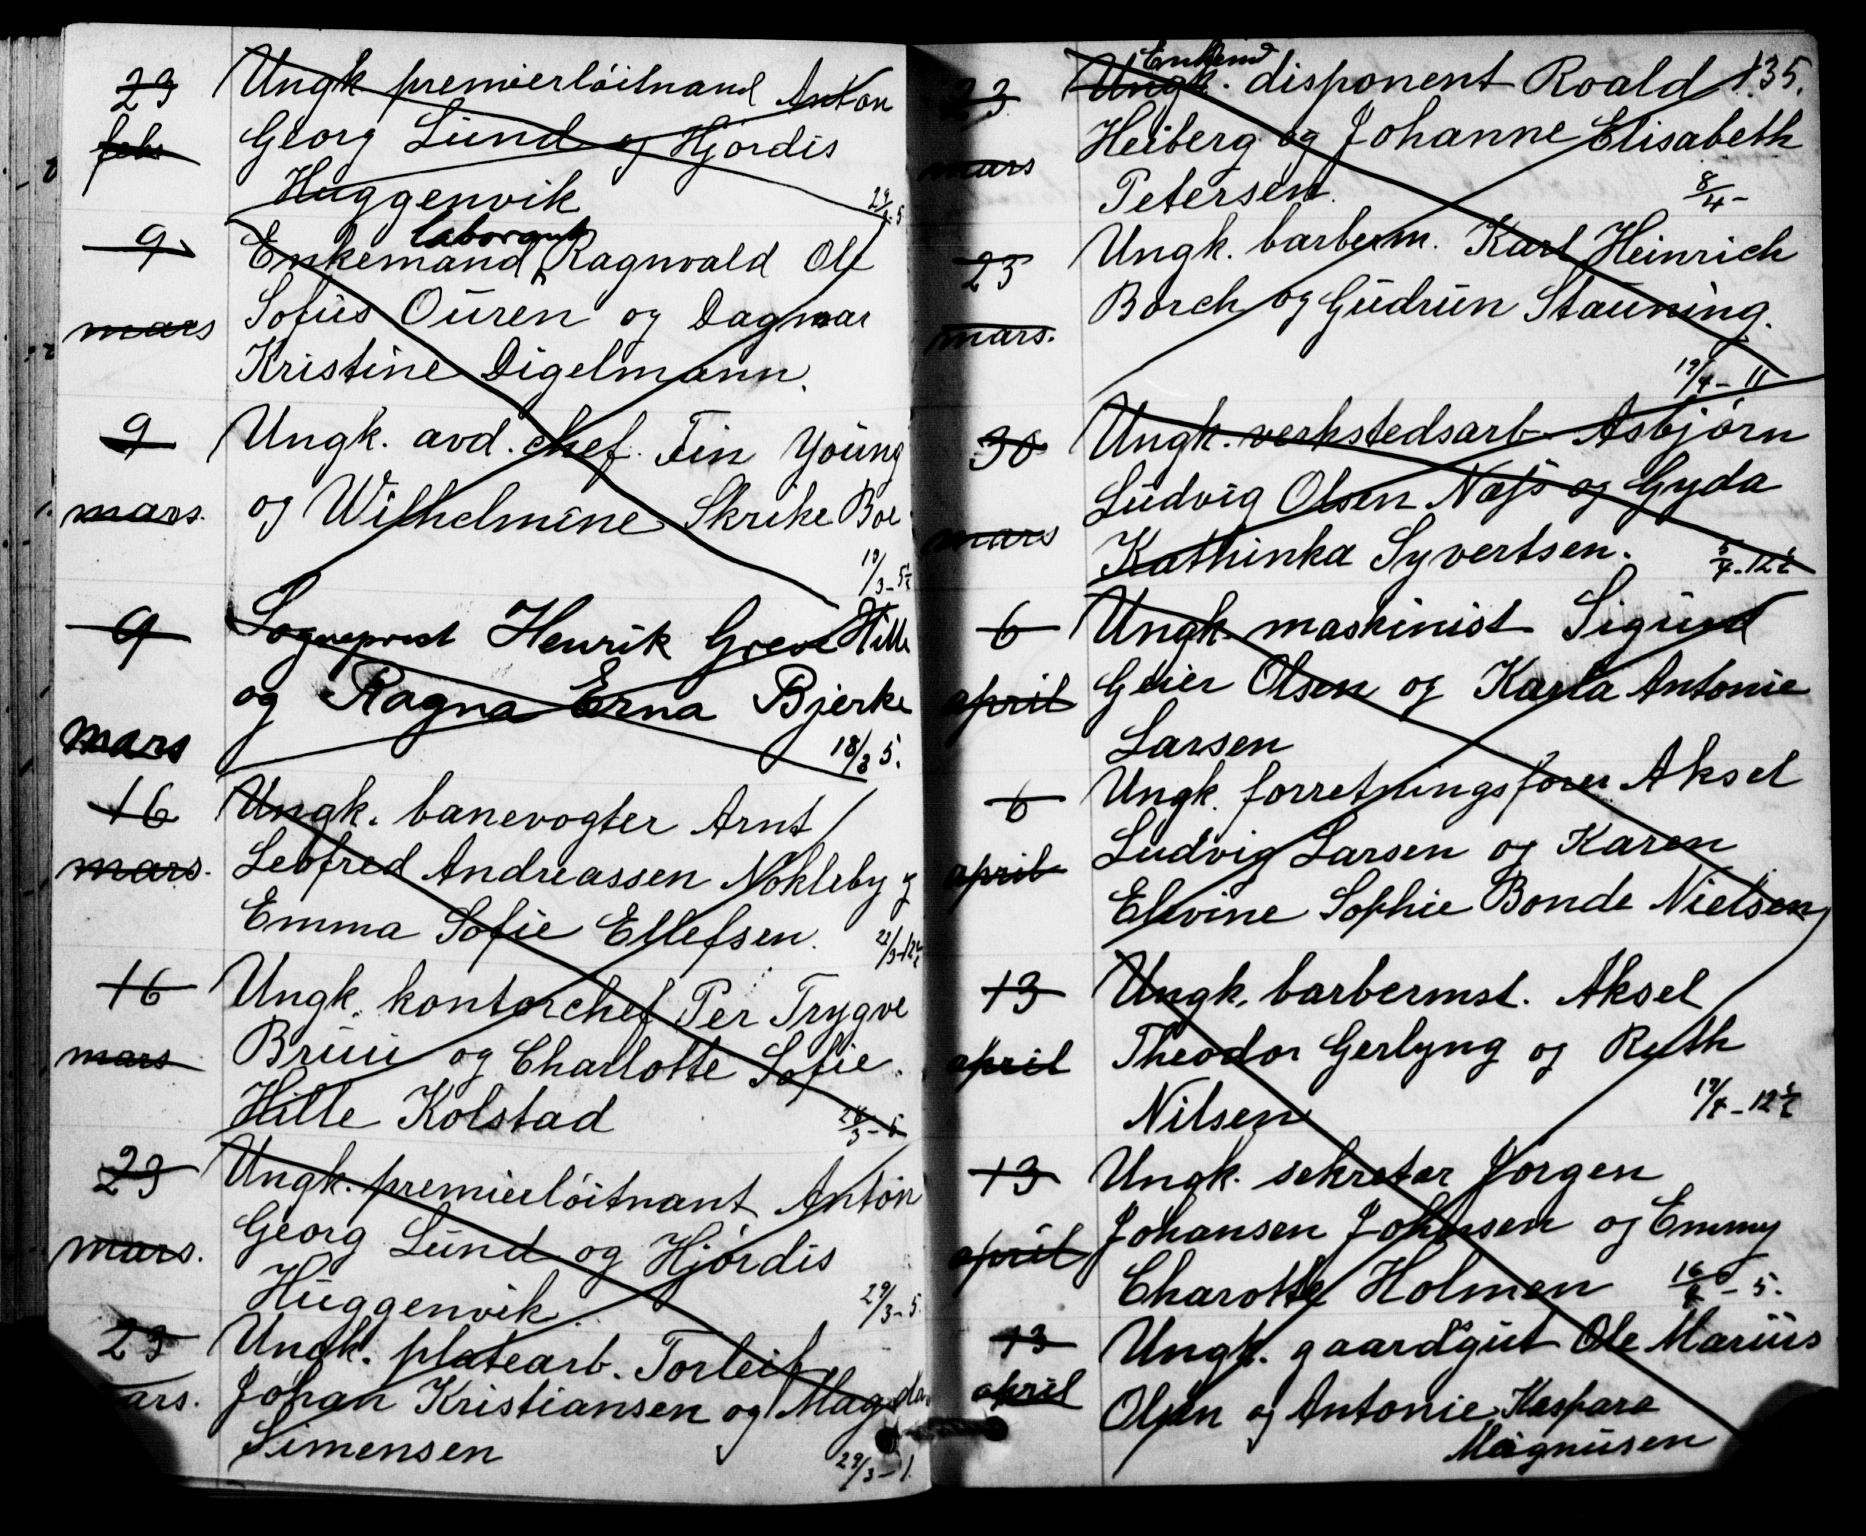 23 Ungk premierløitnand Anton
febr Georg Lund og Hjørdis
Huggenvik
laborant
9 Enkemand Ragnvald Olf
mars Sofus Ouren og Dagmar
Kristine Digelmann.
9 Ungk. avd. chef. Fin Young
mars. og Wilhelmine Skrike Boe
19/3-5½
9 Sogneprest Henrik Greve Hille
og Ragna Erna Bjerke
mars 18/3 5.
16 Ungk. banevogter Arnt
mars. Leofred Andreassen Nøkleby og
Emma Sofie Ellefsen. 21/3-12½
16 Ungk. kontorchef Per Trygve
mars Bruu og Charlotte Sofie
Hille Kolstad
23 Ungk. premierløitnant Anton
mars. Georg Lund og Hjørdis
Huggenvik. 29/3-5.
23 Ungk. platearb. Torleif
ars. Johan Kristiansen og Magda
Simensen 29/3-1.
135.
Enkemd
23 Ungk. disponent Roald
mars Heiberg og Johanne Elisabeth
Petersen. 8/4-
23 Ungk. barberm. Karl Heinrich
mars. Borch og Gudrun Stauning.
19/4-11
30 Ungk. verkstedsarb. Asbjørn
Ludvig Olsen Næss og Gyda
mars Kathinka Syvertsen. 5/4-12½
6 Ungk. maskinist Sigurd
april Geier Olsen og Karla Antonie
Larsen
6 Ungk. forretningsfører Aksel
april Ludvig Larsen og Karen
Elevine Sophie Bonde Nielsen,
13 Ungk. barbermst. Aksel
april Theodor Gerlyng og Ruth
Nilsen 17/4-12½
13 Ungk. sekretær Jørgen
april Johansen Johnsen og Emmy
Charotte Holmen 16/4-5.
13 Ungk. gaardsgut Ole Marius
april Olsen og Antonie Kaspara
Magnusen